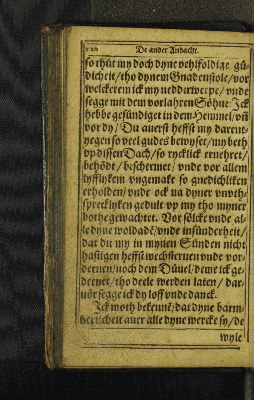 De ander Andacht.
so thüt my doch dyne vehlfoldige gü-
dicheit / tho dynem Gnadenstole / vor
welckerem ick my nedderwerpe / vnde
segge mit dem vorlahren Söhne: Ick
hebbe gesündiget in dem Hemmel / vn̄
vor dy / Du auerst hefft my darent-
yegen so veel gudes bewyset / my beth
vp dissen Dach / so rycklick ernehret /
behödt / beschermet / vnde vor allem
lyfflykem vngemake so gnedichliken
erholden / vnde ock na dyner vnuth-
sprecklyken gedult vp my tho myner
bothe gewachtet. Vor sölcke vnde al-
le dyne woldade / vnde insünderheit /
dat du my in mynen Sünden nicht
hastigen heffst wechsteruen vnde vor-
deruen / noch dem Düuel / deme ick ge-
deenet / tho deele werden laten / dar-
uör segge ick dy loff vnde danck.
Ick moth bekenne / dat dyne barm-
herticheit auer alle dyne wercke sy / de
wyle